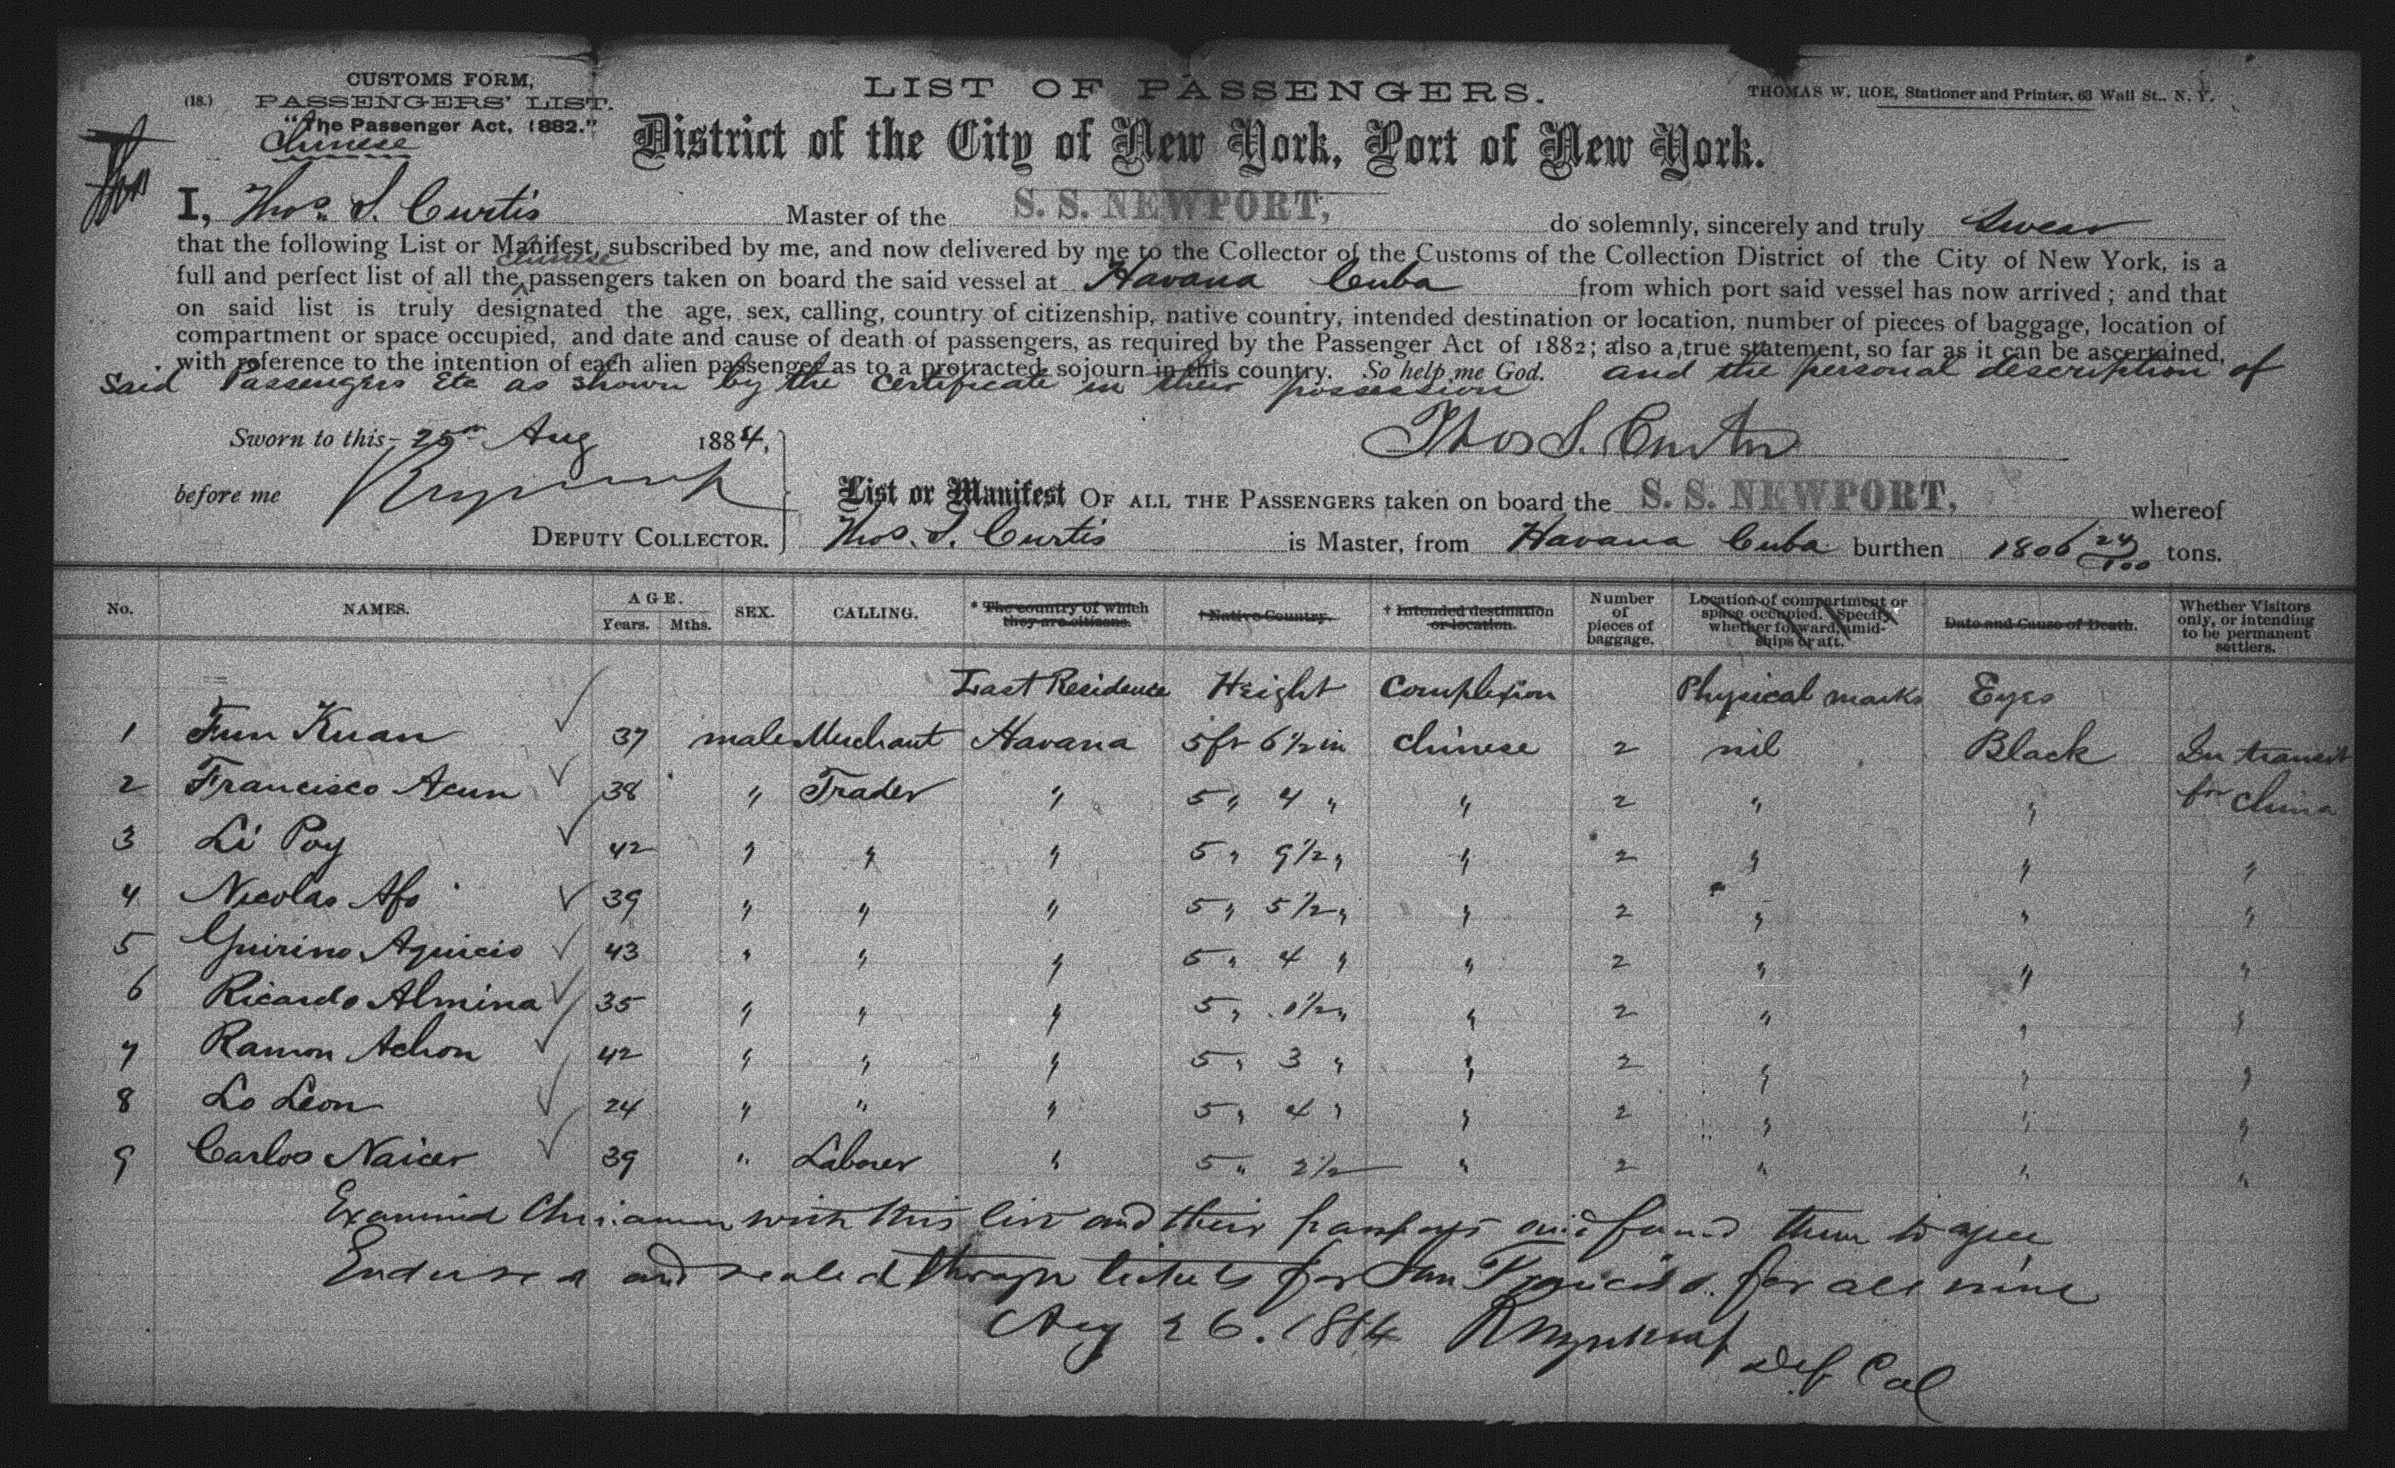 CUSTOMS FORM,
(18.) PASSENGERS' LIST.
"The Passenger Act, 1882."
Chinese
LIST OF PASSENGERS.
THOMAS W. ROE, Stationer and Printer, 63 Wall St., N. Y.
District of the City of New York, Port of New York.
I, Thos. S. Curtis Master of the S. S. NEWPORT, do solemnly, sincerely and truly Swear
that the following List or Manifest, subscribed by me, and now delivered by me to the Collector of the Customs of the Collection District of the City of New York, is a
full and perfect list of all the ^ Chinese passengers taken on board the said vessel at Havana Cuba from which port said vessel has now arrived; and that
on said list is truly designated the age, sex, calling, country of citizenship, native country, intended destination or location, number of pieces of baggage, location of
compartment or space occupied, and date and cause of death of passengers, as required by the Passenger Act of 1882; also a true statement, so far as it can be ascertained,
with reference to the intention of each alien passenger as to a protracted sojourn in this country. So help me God. and the personal description of
said Passengers Etc as shown by the certificate in their possession
Sworn to this 25th Aug 1884,
Thos S. Curtis
before me
DEPUTY COLLECTOR.
List or Manifest OF ALL THE PASSENGERS taken on board the S. S. NEWPORT, whereof
Thos. S. Curtis is Master, from Havana Cuba burthen 1806 24/100 tons.
No. NAMES. AGE. Years. Mths. SEX. CALLING. * The country of which they are citizens. † Native Country. † Intended destination or location. Number of pieces of baggage. Location of compartment or space occupied. (Specify whether forward, amidships or aft. Date and Cause of Death. Whether Visitors only, or intending to be permanent settlers.
Last Residence Height Complexion Physical marks Eyes
1 Fun Kuan 37 male Merchant Havana 5 ft 6 1/2 in Chinese 2 nil Black In transit
2 Francisco Acun 38 " Trader " 5 " 4 " " 2 " " for China
3 Li Poy 42 " " " 5 " 9 1/2 " " 2 " " "
4 Nicolas Afo 39 " " " 5 " 5 1/2 " " 2 " " "
5 Quirino Aquicio 43 " " " 5 " 4 " " 2 " " "
6 Ricardo Almina 35 " " " 5 " 1 1/2 " " 2 " " "
7 Ramon Achon 42 " " " 5 " 3 " " 2 " " "
8 Lo Leon 24 " " " 5 " 4 " " 2 " " "
9 Carlos Naicer 39 " Laborer " 5 " 2 1/2 " 2 " " "
Examined Chinamen with this list and their passports and found them to agree
Endorsed and sealed through tickets for San Francisco for all nine
Aug 26. 1884 Dep Col